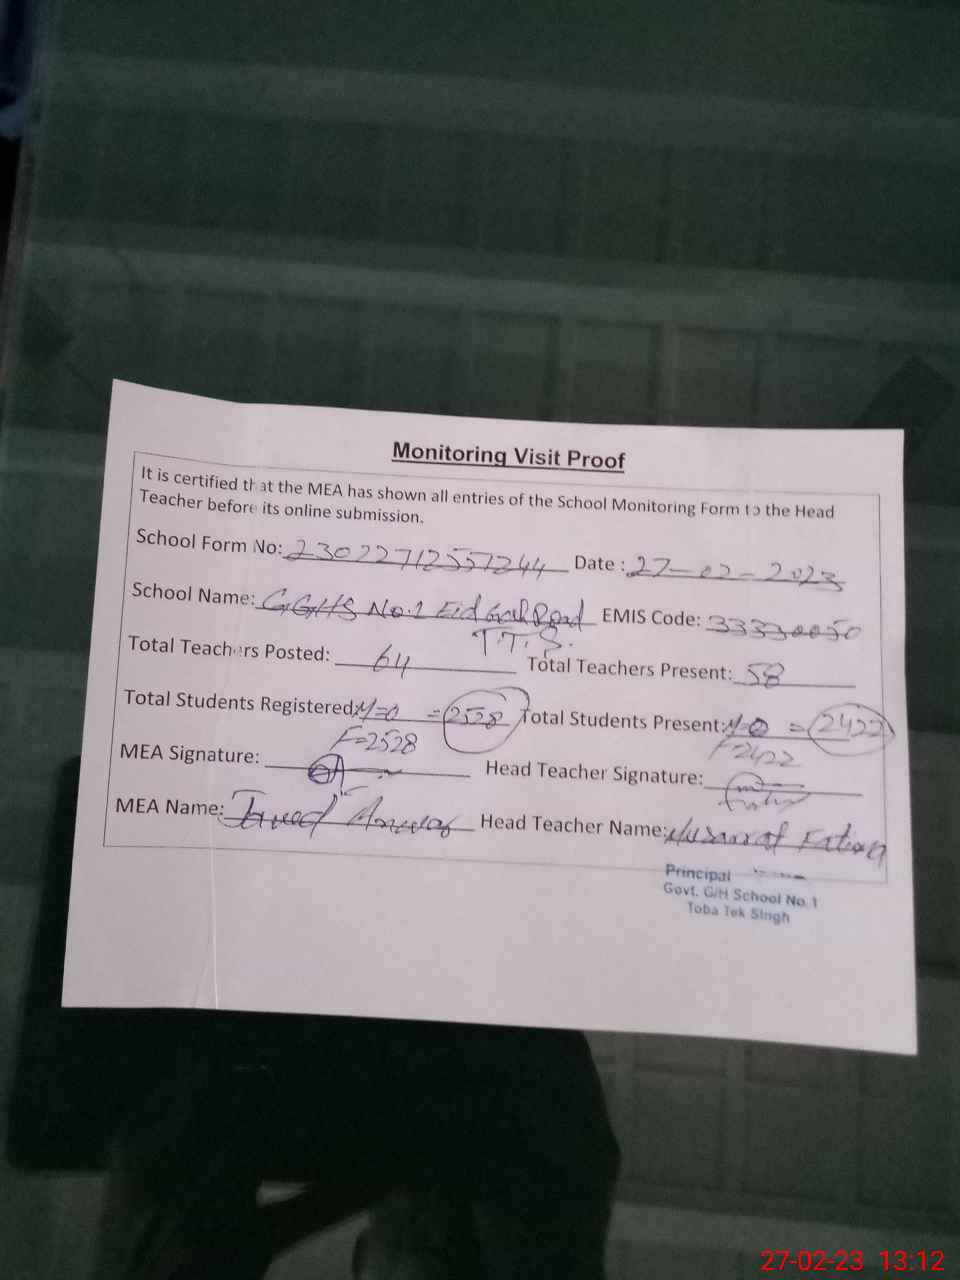 Monitoring Visit Proof
It is certified that the MEA has shown all entries of the School Monitoring Form to the Head
Teacher before its online submission.
School Form No: 23022712557244 Date : 27-02-2023
School Name: GGHS No.1 Eid Gah Road EMIS Code: 33330050
T.T.S.
Total Teachers Posted: 64 Total Teachers Present: 58
Total Students Registered: M=0 = 2528 Total Students Present: M=0 = 2422
F=2528 F=2422
MEA Signature: Head Teacher Signature:
MEA Name: Javed Anwar Head Teacher Name: Musarrat Fatima
Principal
Govt. G/H School No.1
Toba Tek Singh
27-02-23 13:12